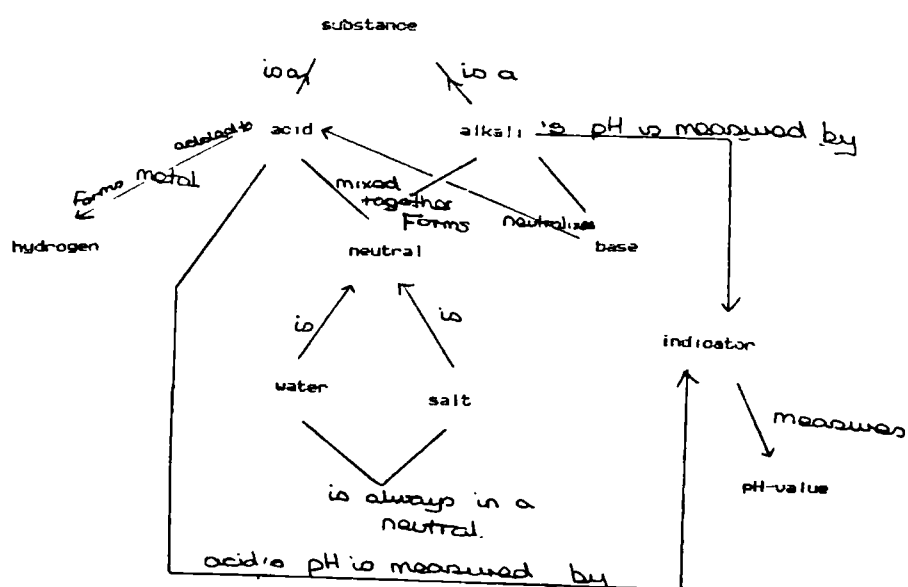 substance
is a
is a
acid
alkali
is pH is measured by
added to
metal
Forms
mixed
together
Forms
neutralises
hydrogen
neutral
base
is
is
indicator
water
salt
measures
pH-value
is always in a
neutral.
acid is pH is measured by